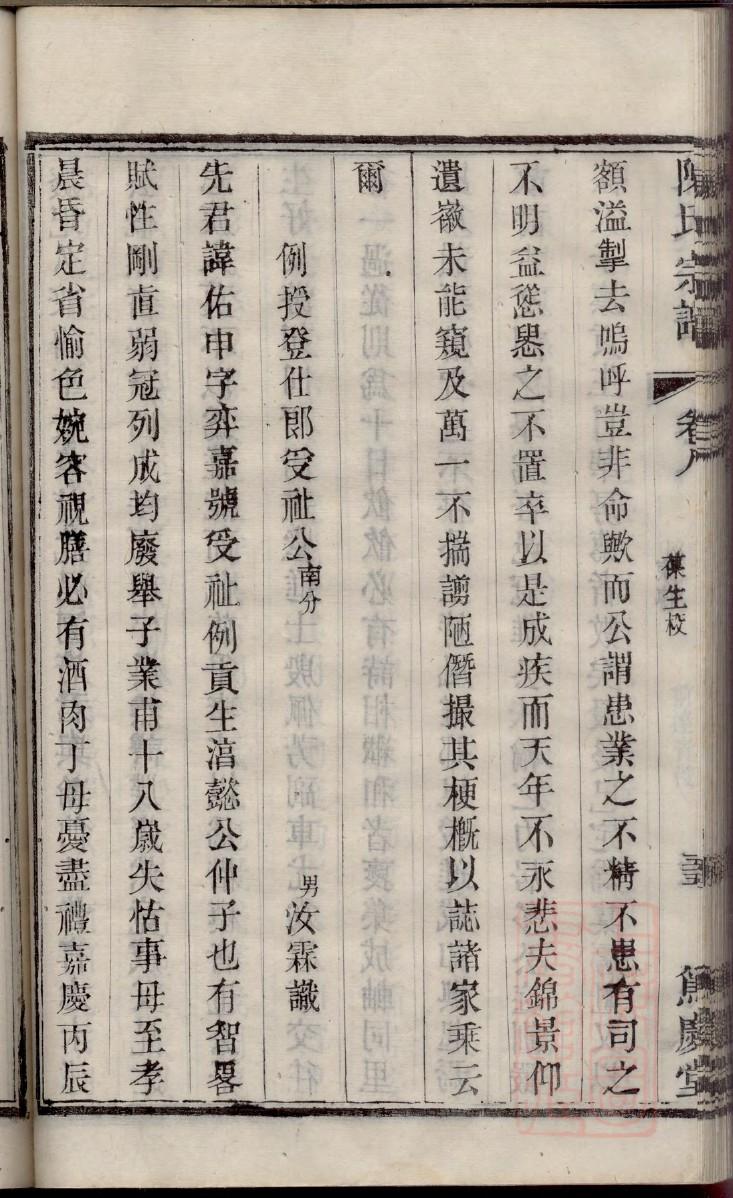 陳氏宗譜
卷八
葆生校
篤慶堂
額溢掣去嗚呼豈非命歟而公謂患業之不精不患有司之
不明益慫恿之不置卒以是成疾而天年不永悲夫錦景仰
遺徽未能窺及萬一不揣謭陋僭撮其梗概以誌諸家乘云
爾
例授登仕郎受祉公南分 男汝霖識
先君諱佑申字弈嘉號受祉例貢生湻懿公仲子也有智畧
賦性剛直弱冠列成均廢舉子業甫十八歲失怙事母至孝
晨昏定省愉色婉容視膳必有酒肉丁母憂盡禮嘉慶丙辰